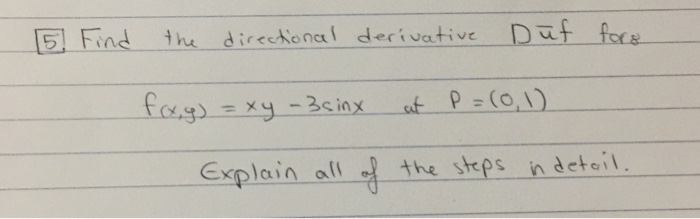 5 Find the directional derivative Dūf for:
f(x,y) = xy - 3sinx at P = (0,1)
Explain all of the steps in detail.